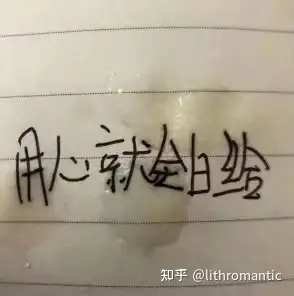 用心就会白给
知乎 @lithromantic